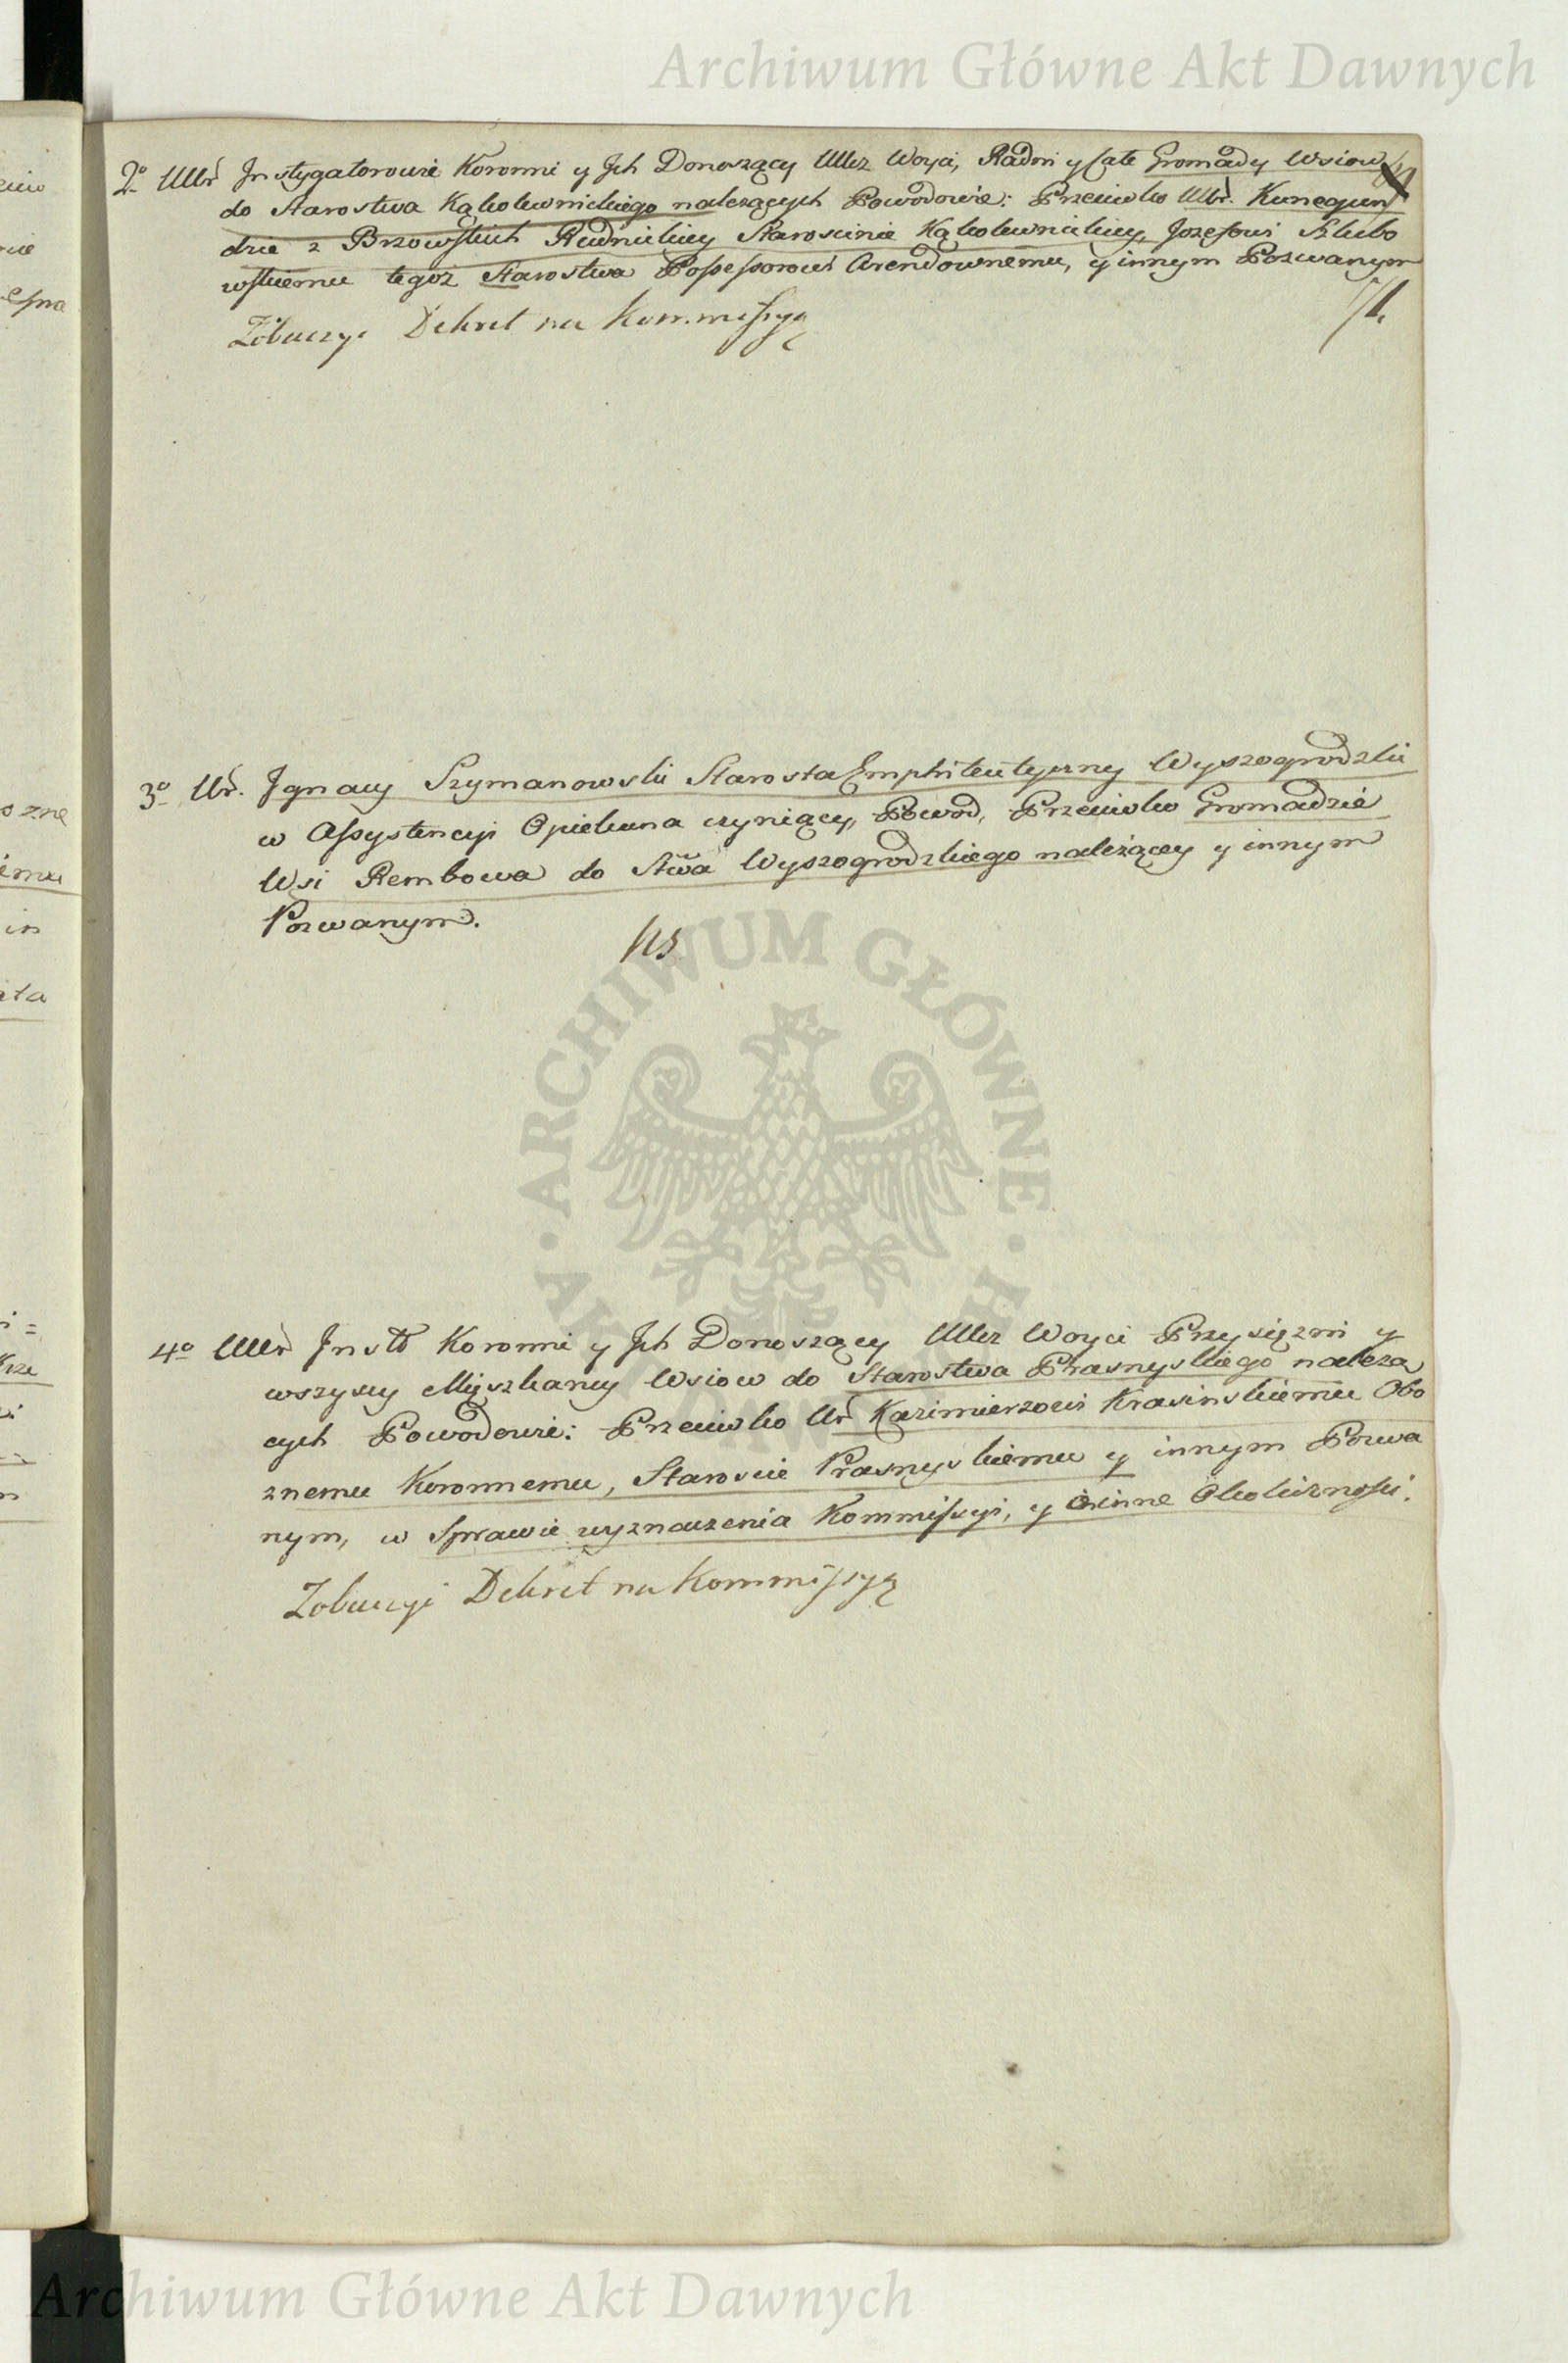 Archiwum Główne Akt Dawnych
2o UUr Instygatorowie Koronni y Ich Donoszący UUcz Woyci, Radni y całe Gromady Wsiow
do Starostwa Kąkolewnickiego należących Powodowie: Przeciwko Ur. Kunegun
dzie z Brzowskich Rudnickiey Starościnie Kąkolewnickiey, Jozefowi Szlubo
wskiemu tegoż Starostwa Possessorowi Arendownemu, y innym Pozwanym
Zobaczyć Dekret na Kommissyą
3o Ur. Ignacy Szymanowski Starosta Emphiteutyczny Wyszogrodzki
w Assystencyi Opiekuna czyniący, Powod, Przeciwko Gromadzie
Wsi Rembowa do Stwa Wyszogrodzkiego należącey y innym
Pozwanym.
4o UUr Instt Koronni y Ich Donoszący UUcz Woyci Przysiężni y
wszyscy Mięszkancy Wsiow do Starostwa Prasnyskiego należą
cych Powodowie: Przeciwko Ur Kazimierzowi Krasinskiemu Obo
znemu Koronnemu, Staroscie Prasnyskiemu y innym Pozwa
nym, w Sprawie wyznaczenia Kommissyi, y inne Okoliczności.
Zobaczyć Dekret na Kommissyą
ARCHIWUM GŁÓWNE AKT DAWNYCH
Archiwum Główne Akt Dawnych